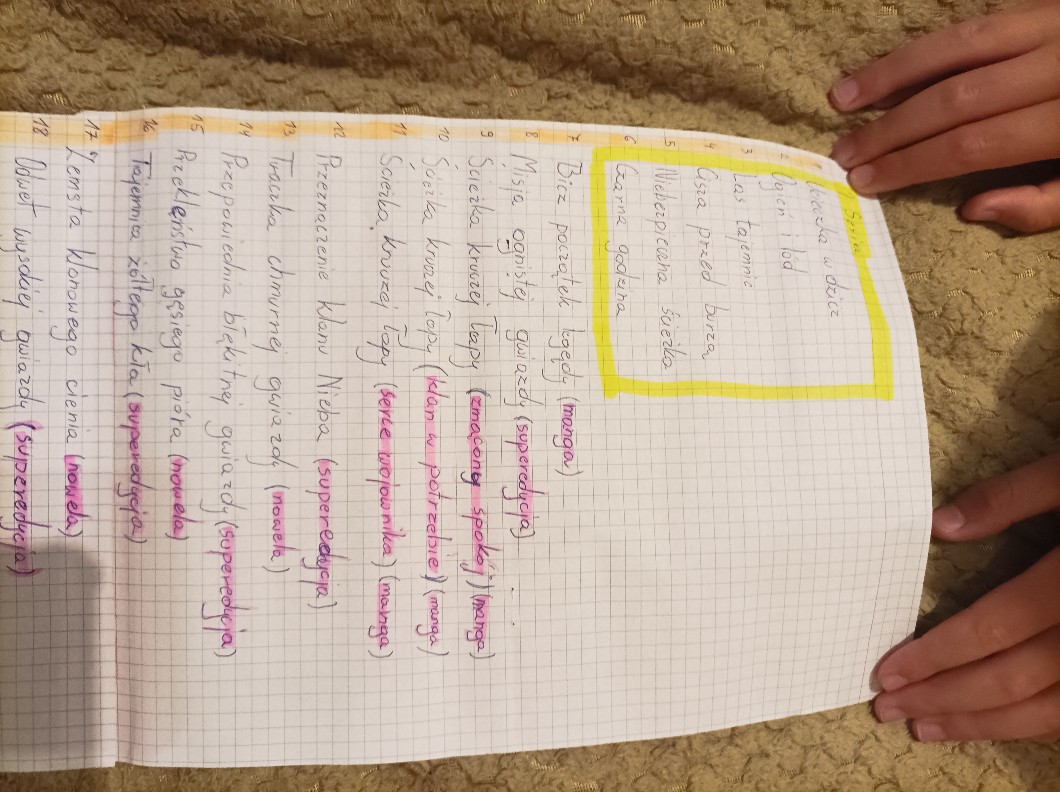 1 Seria
Ucieczka w dzicz
2 Ogień i lód
3 Las tajemnic
4 Cisza przed burzą
5 Niebezpieczna ścieżka
6 Czarna godzina
7 Bicz początek legędy (manga)
8 Misja ognistej gwiazdy (superedycja)
9 Ścieżka kruczej łapy (zmącony spokój) (manga)
10 Ścieżka kruczej łapy (klan w potrzebie) (manga)
11 Ścieżka kruczej łapy (serce wojownika) (manga)
12 Przeznaczenie Klanu Nieba (superedycja)
13 Tłaczka chmurnej gwiazdy (nowela)
14 Przepowiednia błękitnej gwiazdy (superedycja)
15 Przekleństwo gęsiego pióra (nowela)
16 Tajemnica żółtego kła (superedycja)
17 Zemsta klonowego cienia (nowela)
18 Odwet wysokiej gwiazdy (superedycja)